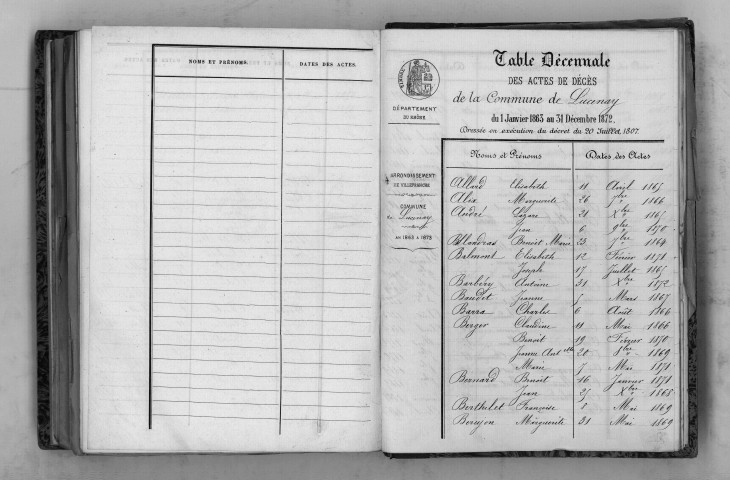 NOMS ET PRÉNOMS.
DATES DES ACTES.
DÉPARTEMENT
DU RHÔNE
ARRONDISSEMENT
DE VILLEFRANCHE
COMMUNE
de Lucenay
DE 1863 à 1872
Table Décennale
DES ACTES DE DÉCÈS
de la Commune de Lucenay
du 1 Janvier 1863 au 31 Décembre 1872.
Dressée en exécution du décret du 20 Juillet 1807.
Noms et Prénoms Dates des Actes
Allard Elisabeth 11 Avril 1865
Alix Marguerite 26 7bre 1866
André Lazare 21 Xbre 1865
Jean 6 9bre 1870
Ballandras Benoît Marie 23 7bre 1864
Balmont Elisabeth 12 Février 1871
Joseph 17 Juillet 1865
Barbéry Antoine 31 Xbre 1872
Baudet Jeanne 5 Mars 1867
Barra Charles 6 Août 1866
Berger Claudine 11 Mai 1866
Benoît 19 Février 1870
Jeanne Ant.tte 20 8bre 1869
Marie 7 Mai 1871
Bernard Benoît 16 Janvier 1871
Jean 27 Xbre 1868
Berthelet Françoise 8 Mai 1869
Berujon Marguerite 31 Mai 1869